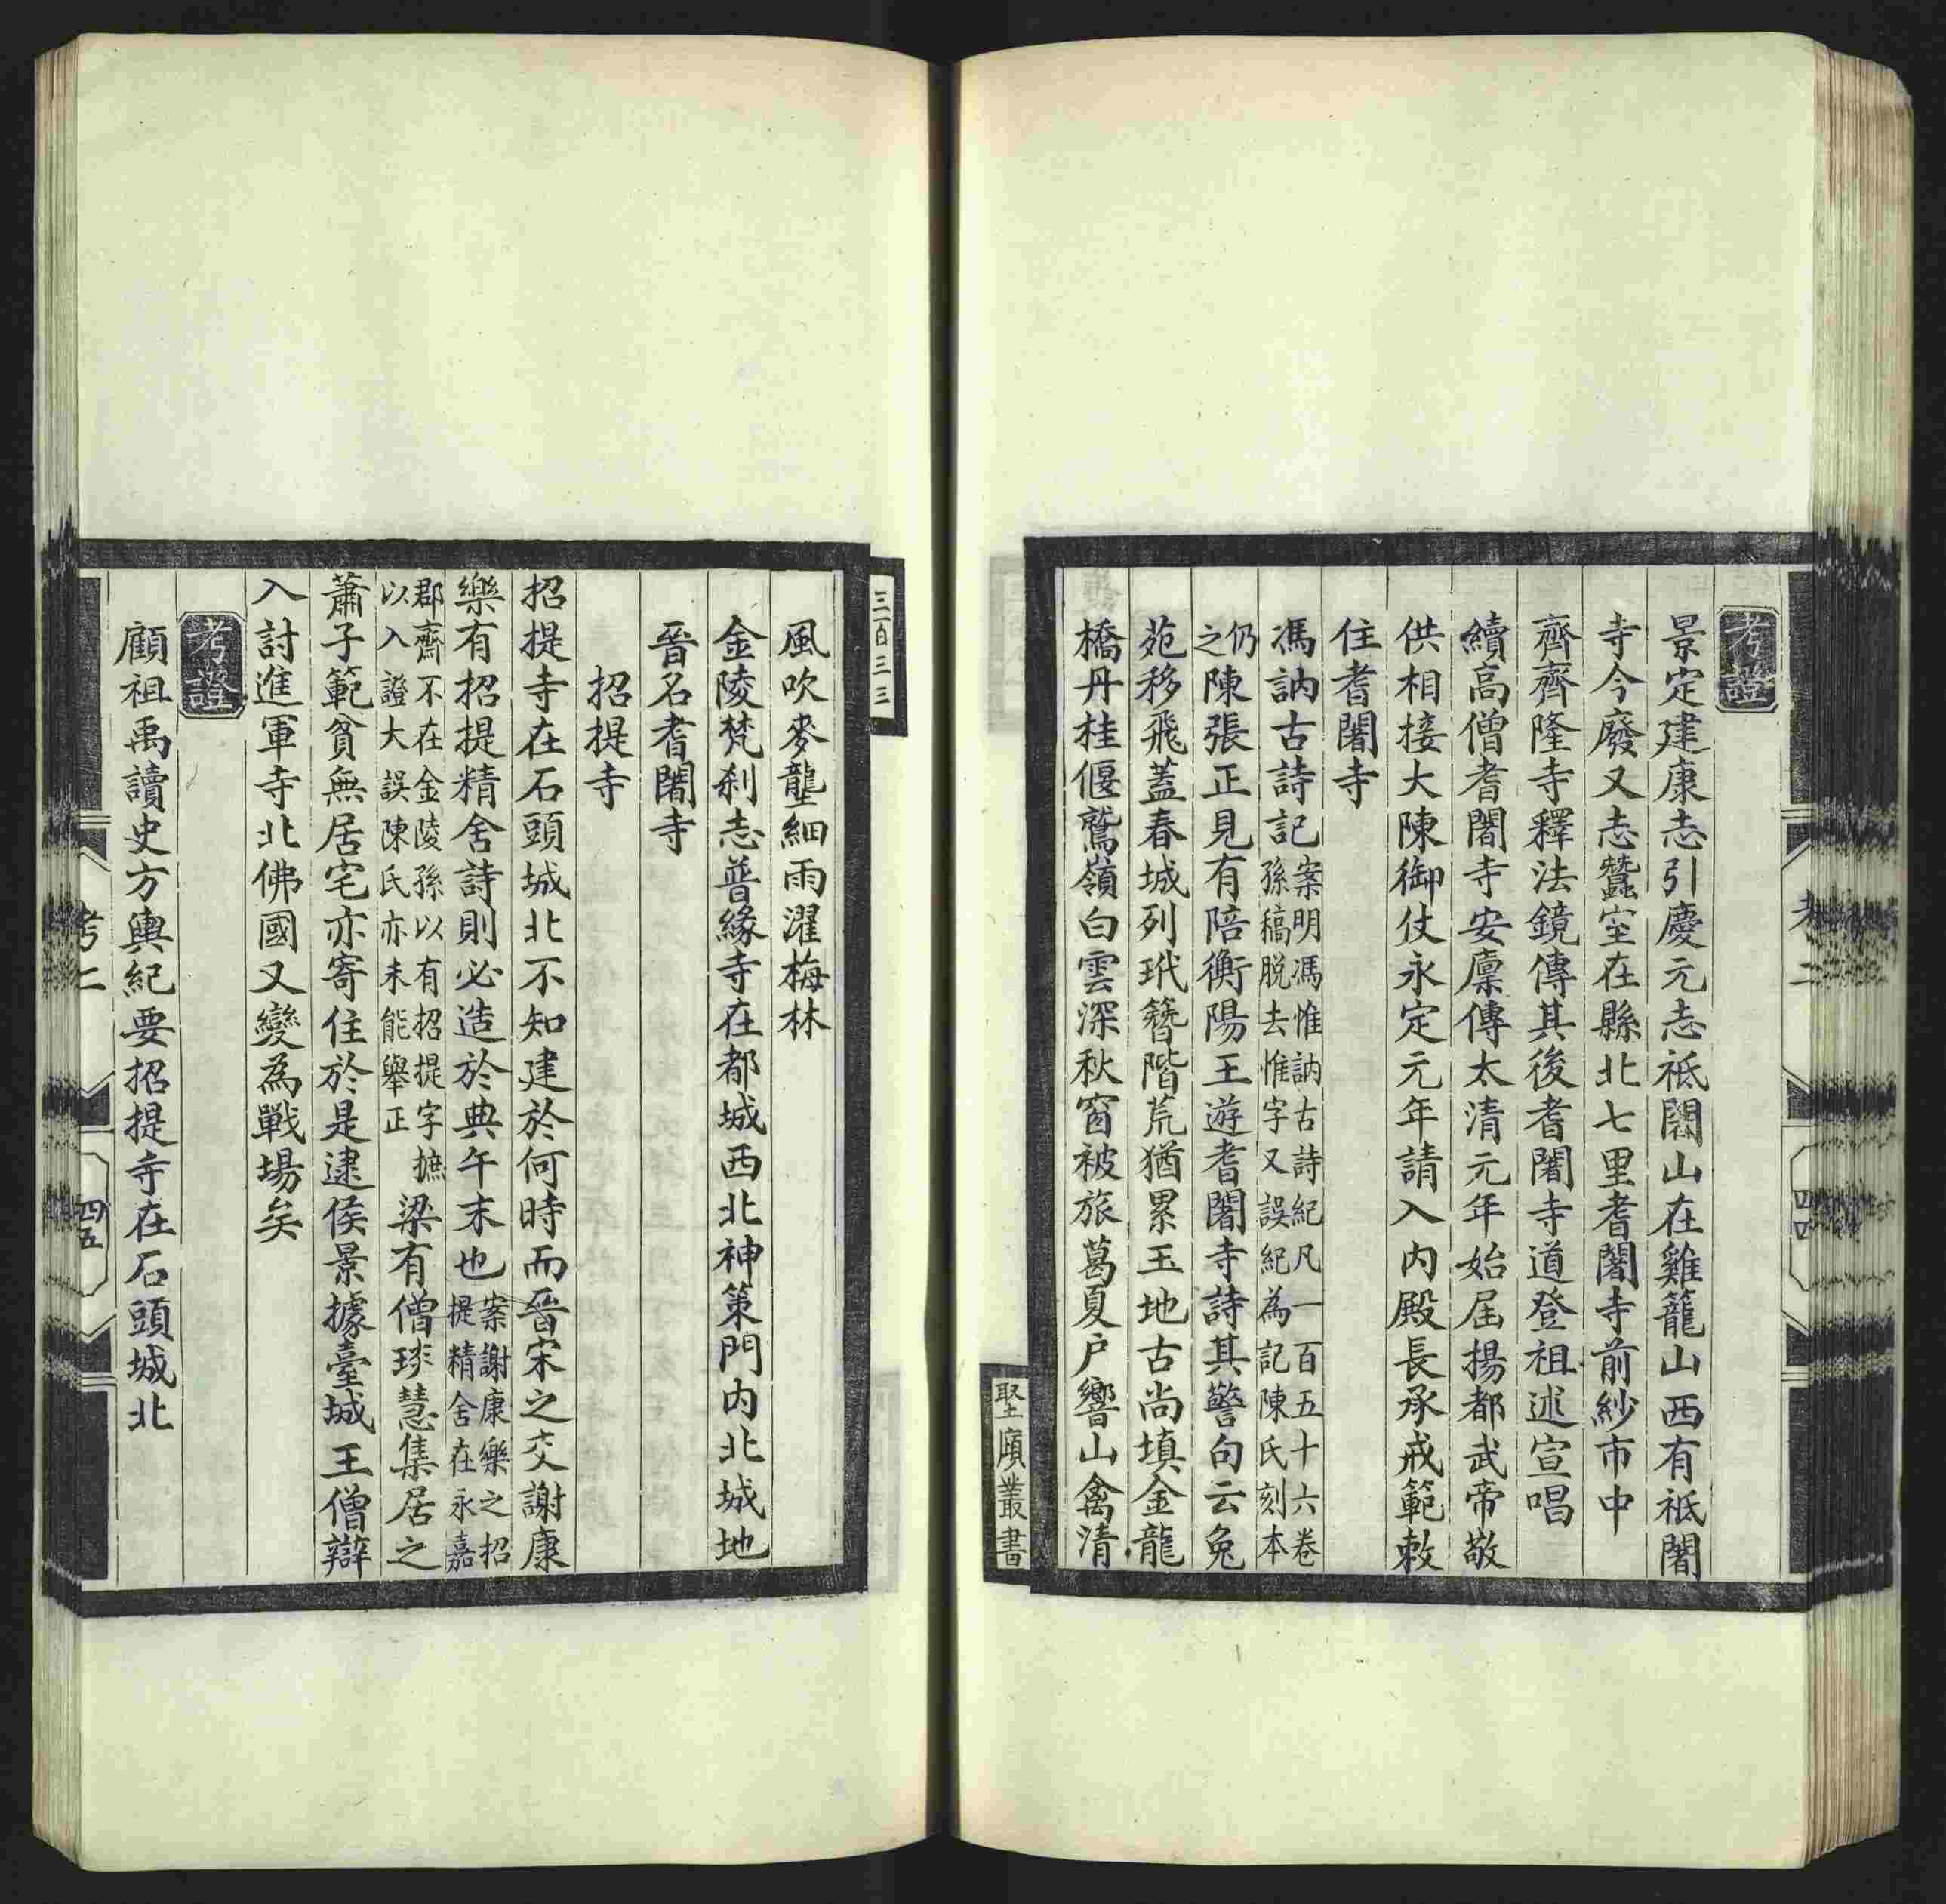 考證
景定建康志引慶元志祗闍山在雞籠山西有祗闍
寺今廢又志蠶室在縣北七里耆闍寺前紗市中
齊齊隆寺釋法鏡傳其後耆闍寺道登祖述宣唱
續高僧耆闍寺安廩傳太清元年始屆揚都武帝敬
供相接大陳御仗永定元年請入內殿長承戒範敕
住耆闍寺
馮訥古詩記案明馮惟訥古詩紀凡一百五十六卷
孫稿脱去惟字又誤紀為記陳氏刻本
仍
之陳張正見有陪衡陽王遊耆闍寺詩其警句云兔
苑移飛蓋春城列玳簪階荒猶累玉地古尚填金龍
橋丹桂偃鷲嶺白雲深秋窗被旅葛夏户響山禽清
考二
四四
堅廎叢書
三百三三
風吹麥壟細雨濯梅林
金陵梵刹志普緣寺在都城西北神策門内北城地
晉名耆闍寺
招提寺
招提寺在石頭城北不知建於何時而晉宋之交謝康
樂有招提精舍詩則必造於典午末也案謝康樂之招
提精舍在永嘉
郡齊不在金陵孫以有招提字摭
以入證大誤陳氏亦未能舉正
梁有僧琰慧集居之
蕭子範貧無居宅亦寄住於是逮侯景據臺城王僧辯
入討進軍寺北佛國又變為戰場矣
考證
顧祖禹讀史方輿紀要招提寺在石頭城北
考二
四五